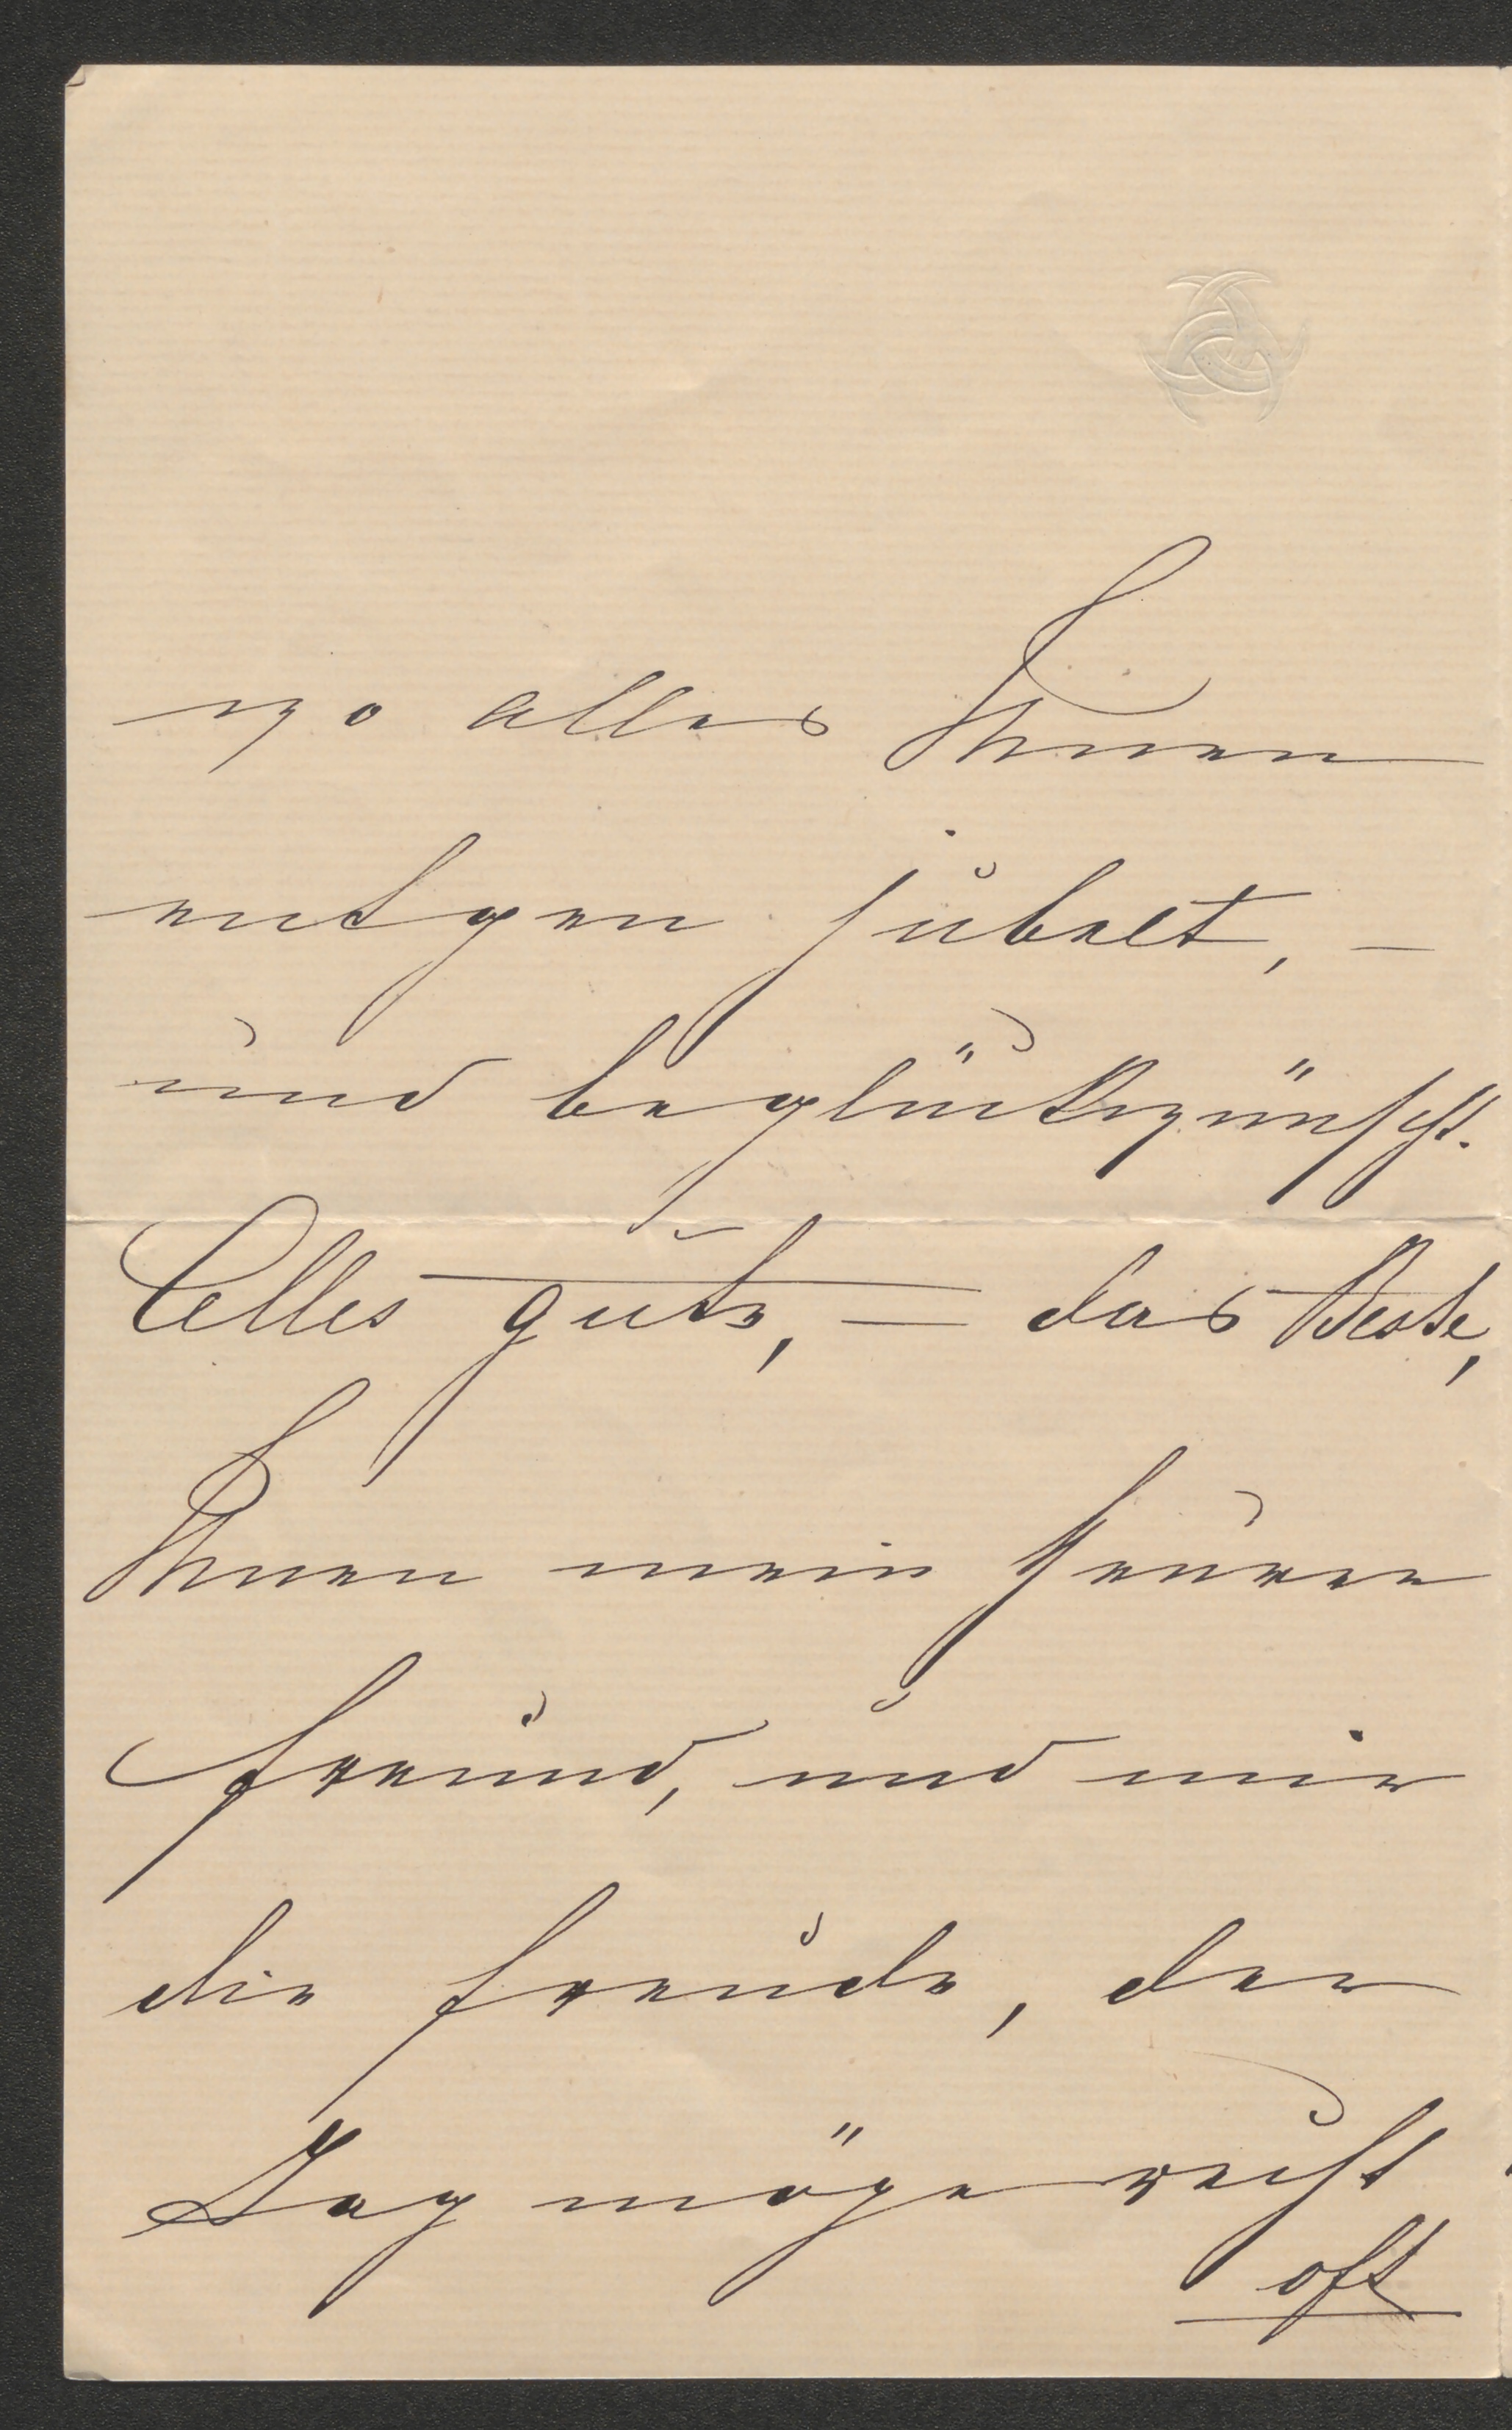 wo alles Ihnen
entgegen jubelt, —
und beglückwünscht.
Alles gute, — das Beste,
Ihnen mein theurer
Freund, und mir
die Freude, der
Tag möge recht
oft